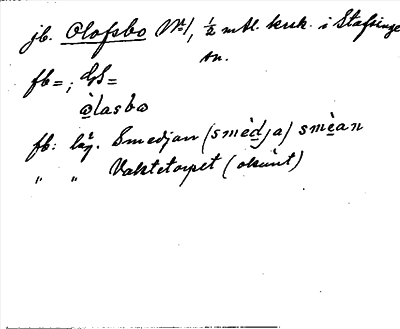 jb. Olofsbo No 1, 1/2 mtl. krsk. i Stafsinge
sn.
fb = ; GS =
ọ̀lasbo
fb: läg. Smedjan (smèdja) smèan
" " Vaktetorpet (okänt)